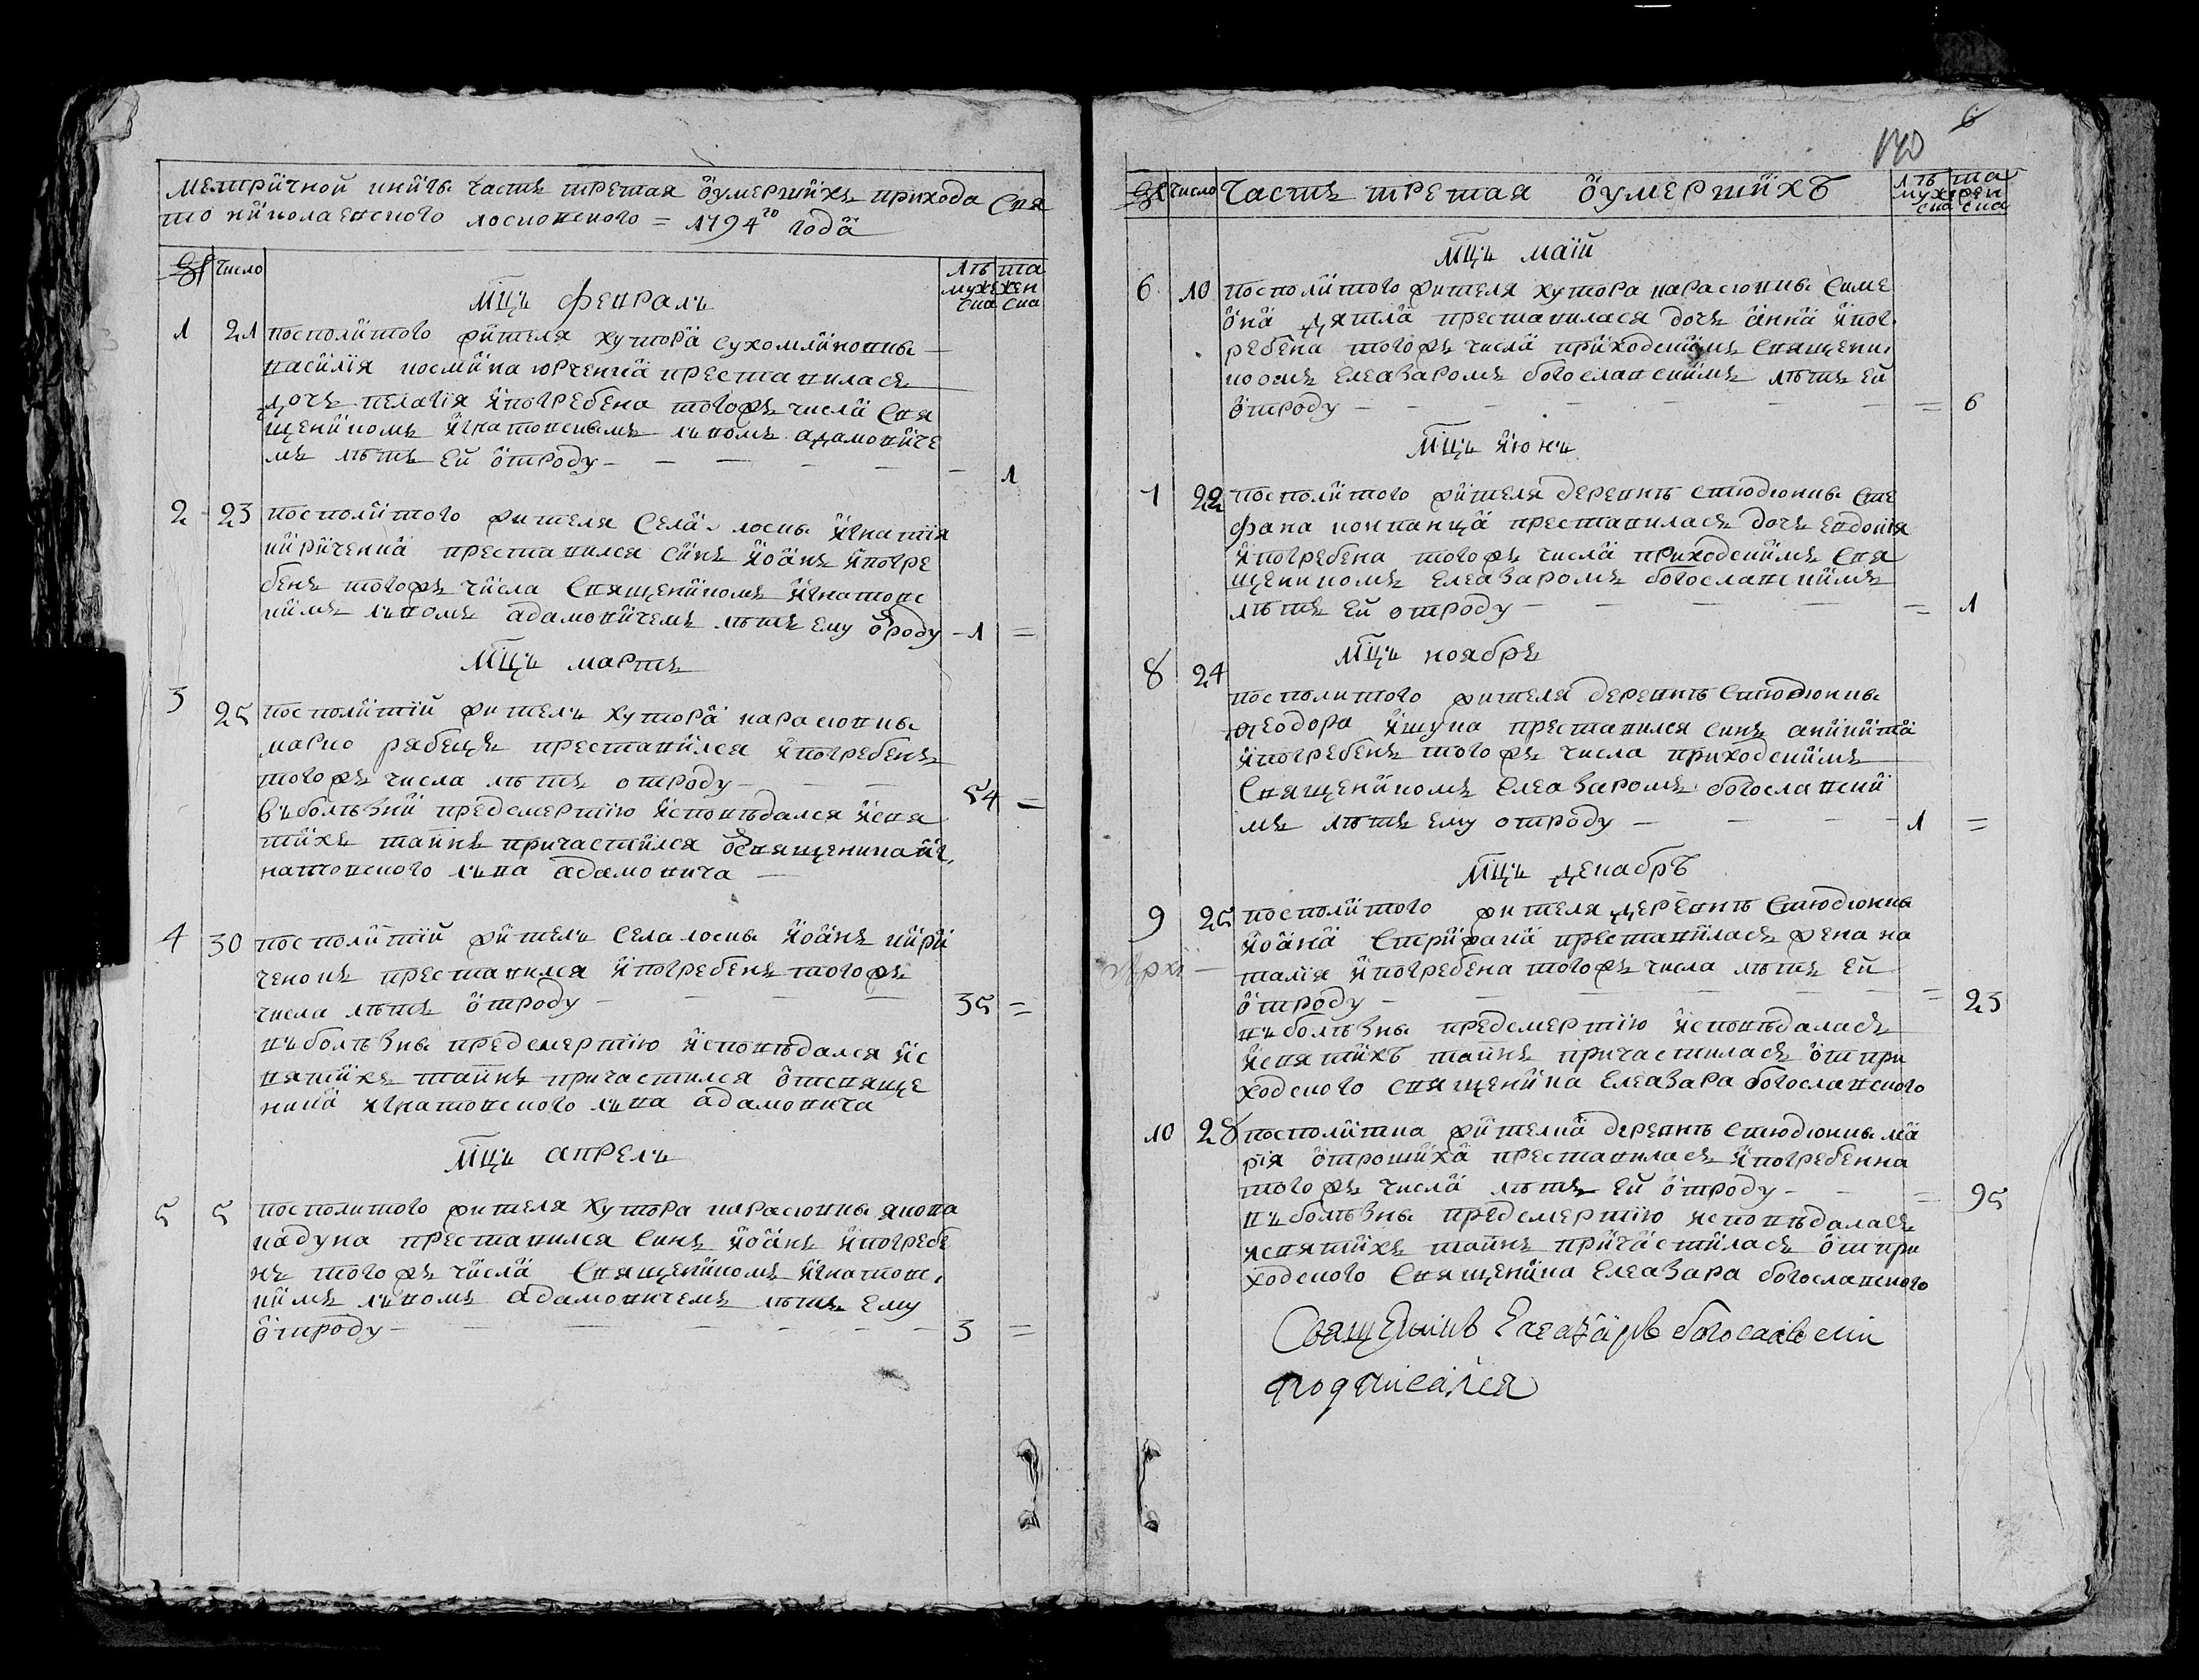 Метричной книгы часть третая ѿумершихъ прихода Свя
то николаевского лосковского = 1794го года
Число
Лѣта
мужеска женска
Мцъ февралъ
1 21 посполитого жителя хутора сухомлиновкы
василія космина юрченка преставилась
дочь пелагія ипогребена тогожъ числа Свя
щеникомъ игнатовскымъ лъвомъ адамовиче
мъ лѣтъ ей ѿтроду - 1
2 23 посполитого жителя Села лоскы игнатія
кириченка преставился Синъ иоанъ ипогре
бенъ тогожъ числа Священикомъ игнатовс
кимъ лъвомъ адамовичемъ лѣтъ ему ѿроду - 1 =
Мцъ мартъ
3 25 посполитій жителъ хутора карасювкы
марко рябецъ преставился ипогребенъ
тогожъ числа лѣтъ отроду - 54 =
въболѣзни предсмертію исповѣдался исвя
тихъ таинъ причастился ѿсвященика иг
натовского лъва адамовича
4 30 посполитій жителъ Села лоскы иоанъ кири
ченокъ преставился ипогребенъ тогожъ
числа лѣтъ ѿтроду - 35 =
въболѣзны предсмертію исповѣдался ис
вятихъ таинъ причастился ѿтсвяще
ника игнатовского лъва адамовича
Мцъ апрелъ
5 5 посполитого жителя хутора карасювкы якова
кадука преставился Синъ иоанъ ипогребе
нъ тогожъ числа Священикомъ игнатовс
кимъ лъвомъ адамовичемъ лѣтъ ему
ѿтроду - 3 =
140 6
Число Часть третая ѿумершихъ
Лѣта
мужеска женска
Мцъ маій
6 10 посполитого жителя хутора карасювкы Симе
она дятла преставилася дочь анна ипог
ребена тогожъ числа приходскимъ Священи
комъ Елеазаромъ богославскимъ лѣтъ ей
ѿтроду - = 6
Мцъ июнъ
7 22 посполитого жителя деревнѣ студювкы Сте
фана ковпанца преставилась дочь евдокія
ипогребена тогожъ числа приходскимъ Свя
щеникомъ Елеазаромъ богославскимъ
лѣтъ ей отроду - = 1
Мцъ ноябрь
8 24 посполитого жителя деревнѣ Студювкы
феодора ищука преставился Синъ аникита
ипогребенъ тогожъ числа приходскимъ
Священикомъ Елеазаромъ богославски
мъ лѣтъ ему отроду - 1 =
Мцъ декабрь
9 25 посполитого жителя деревнѣ Студювкы
иоана Стрижака преставилась жена на
талія ипогребена тогожъ числа лѣтъ ей
ѿтроду - = 23
въболѣзны предсмертію исповѣдалась
исвятихъ таинъ причастилась ѿтпри
ходского священика Елеазара богославского
10 28 посполитка жителка деревнѣ Студювкы ма
рія ѿтрошиха преставилась ипогребенна
тогожъ числа лѣтъ ей ѿтроду - = 95
въболѣзны предсмертію исповѣдалась
исвятихъ таинъ причастилась ѿтпри
ходского Священика Елеазара богославского
Священикъ Елеазаръ богославскій
подписался